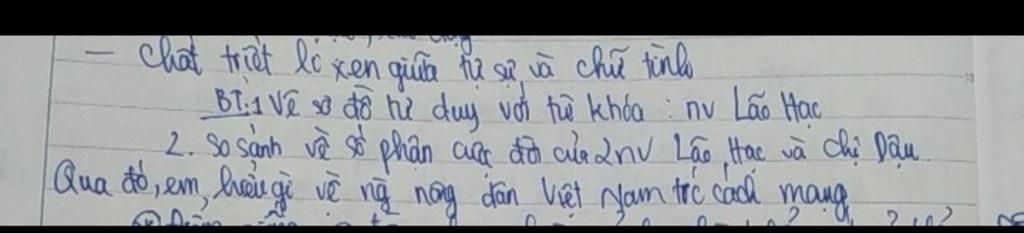 - Chất triết lí xen giữa tự sự và chữ tình
BT:1 Vẽ sơ đồ tư duy với từ khóa : nv Lão Hạc
2. So sánh về số phận cuộc đời của 2nv Lão Hạc và chị Dậu.
Qua đó, em hiểu gì về ng nông dân Việt Nam trc cách mạng